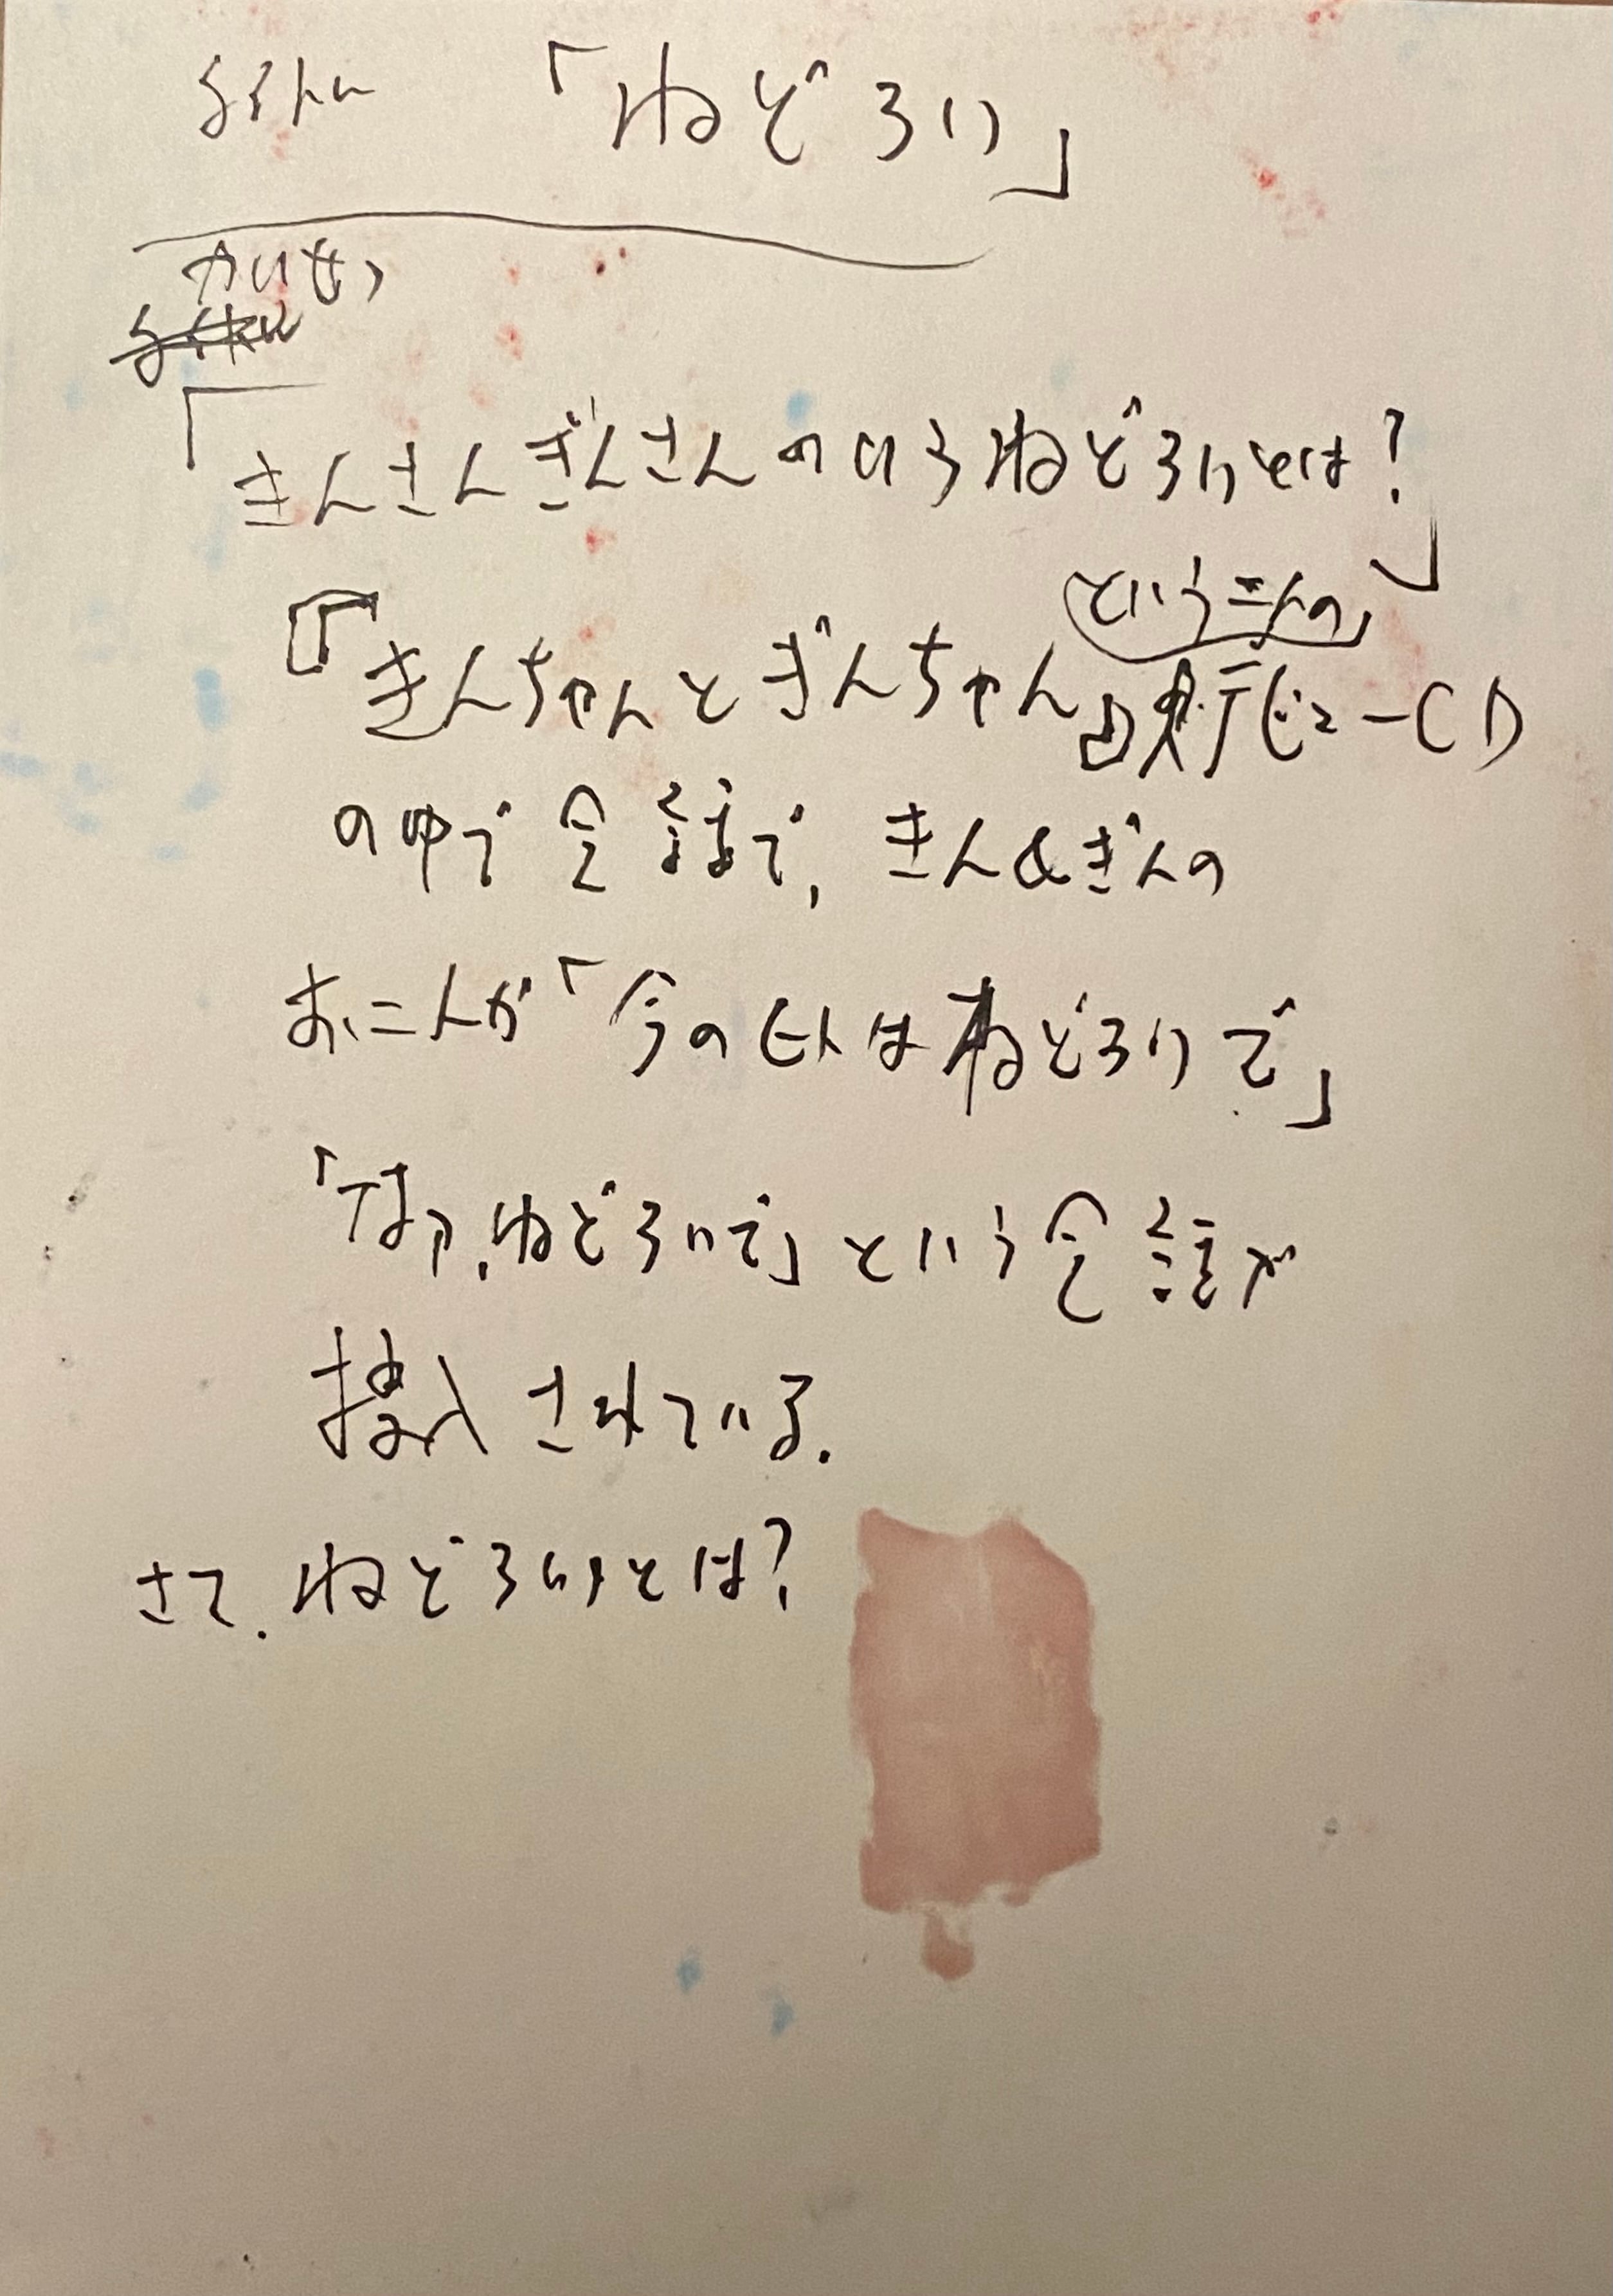 「ねどろい」
かいせつ
「きんさんぎんさんのいうねどろいとは?」
『きんちゃんとぎんちゃん』
という二人の
デビューCD
の中で会話で、きん&ぎんの
お二人が「今のヒトはねどろいで」
「なァ、ねどろいで」という会話が
挿入されている.
さて.ねどろいとは?